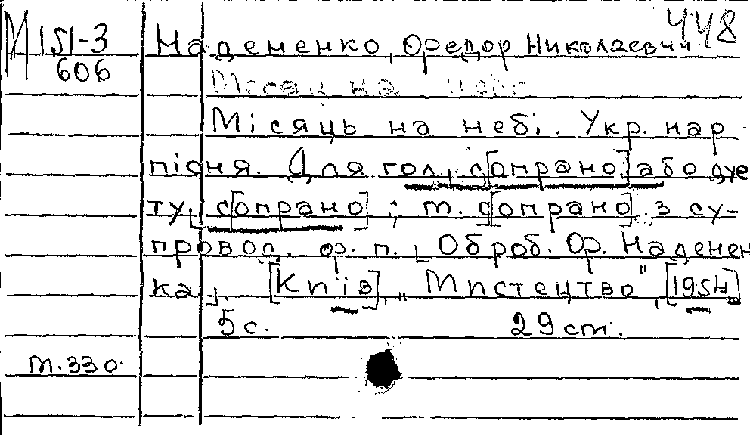 448
М 151-3 Надененко, Федор Николаевич
606
Місяць на небі
Місяць на небі. Укр. нар
пісня. Для гол. с[опрано] або дуе
ту с[опрано] ; т. с[опрано] з су-
провод. ф. п. Оброб. Ф. Наденен
ка. [Київ], „Мистецтво", [1954]
5 с. 29 см.
т. 330.